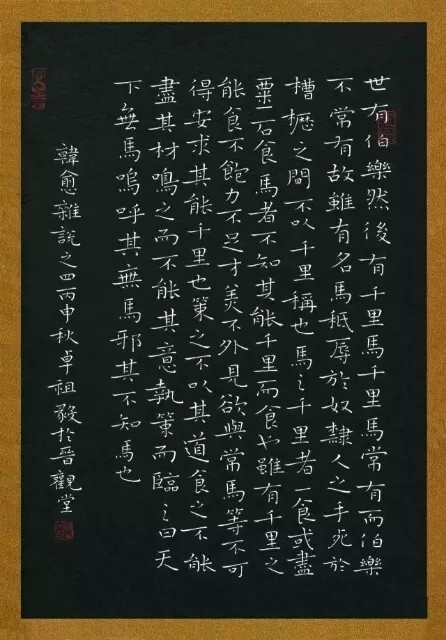 世有伯樂然後有千里馬千里馬常有而伯樂
不常有故雖有名馬秖辱於奴隸人之手死於
槽櫪之間不以千里稱也馬之千里者一食或盡
粟石食馬者不知其能千里而食也雖有千里之
能食不飽力不足才美不外見欲與常馬等不可
得安求其能千里也策之不以其道食之不能
盡其材鳴之而不能其意執策而臨之曰天
下無馬嗚呼其無馬邪其不知馬也
韓愈雜說之四丙申秋卓祖毅於晉觀堂